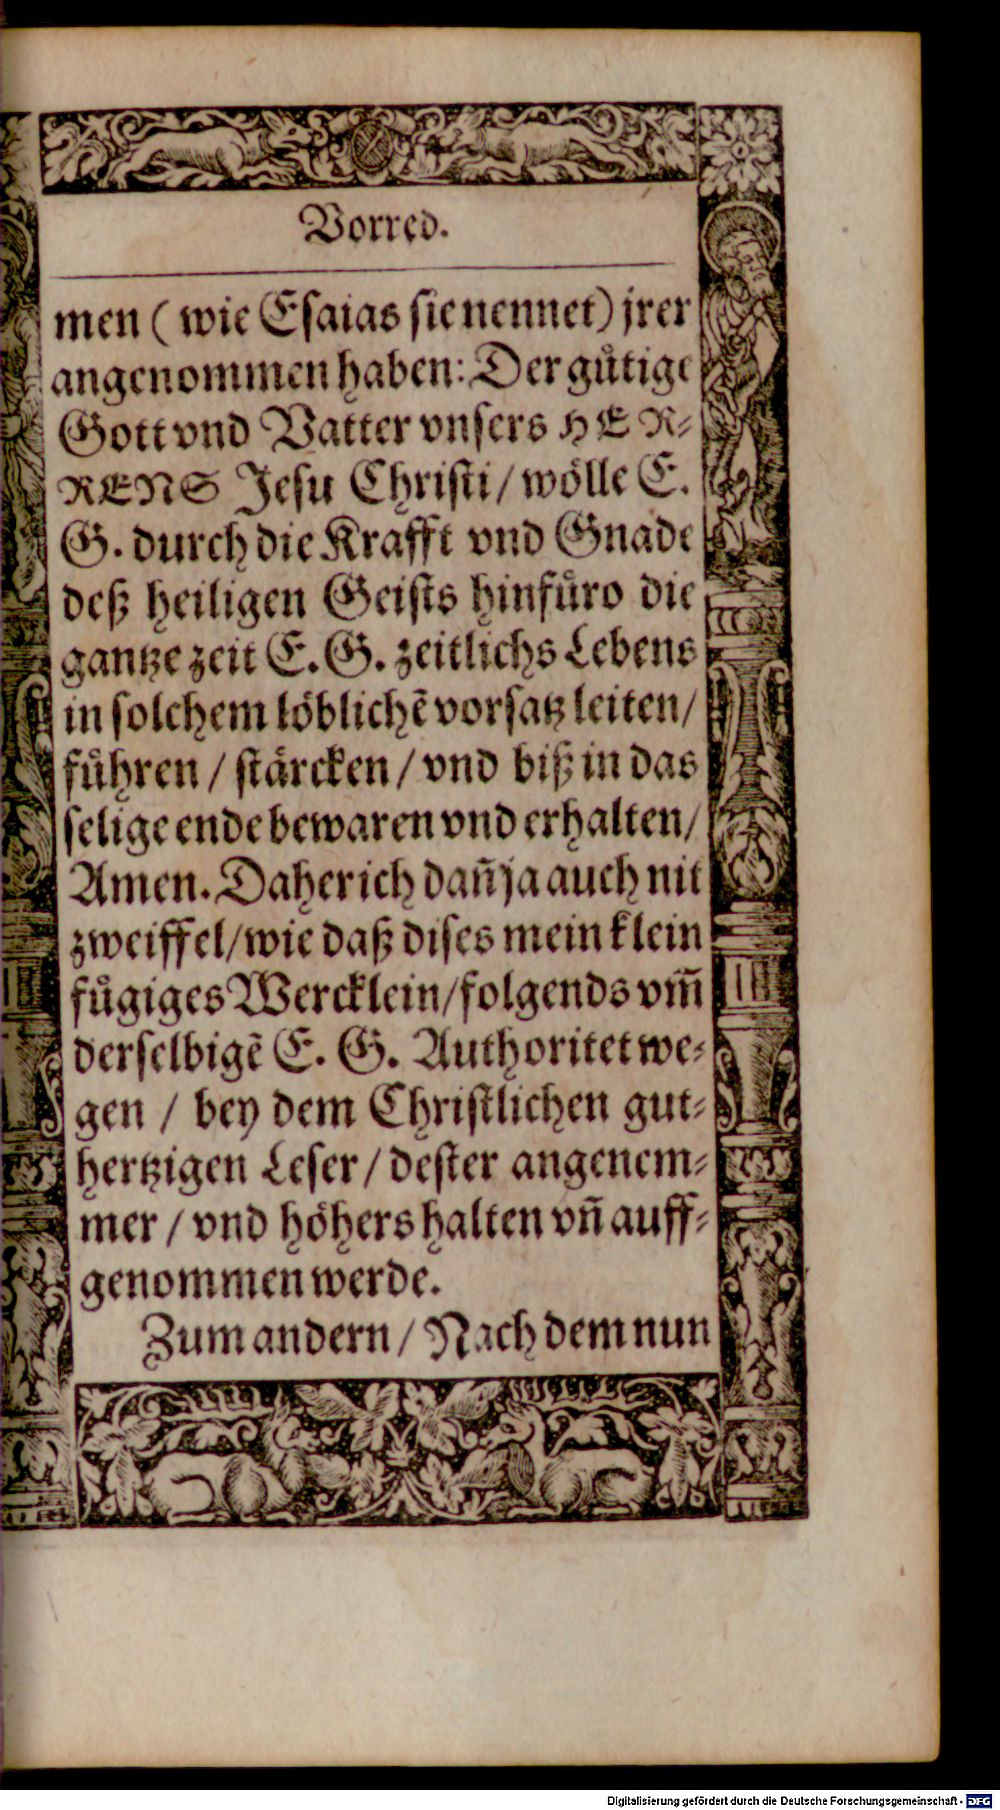 Vorred.
men ( wie Esaias sie nennet) jrer
angenommen haben: Der guͤtige
Gott vnd Vatter vnsers HER-
RENS Jesu Christi / woͤlle E.
G. durch die Krafft vnd Gnade
deß heiligen Geists hinfuͤro die
gantze zeit E. G. zeitlichs Lebens
in solchem loͤblichẽ vorsatz leiten/
fuͤhren / staͤrcken / vnd biß in das
selige ende bewaren vnd erhalten/
Amen. Daher ich dañ ja auch nit
zweiffel/wie daß dises mein klein
fuͤgiges Wercklein/folgends vm̃
derselbigẽ E. G. Authoritet we-
gen / bey dem Christlichen gut-
hertzigen Leser / dester angenem-
mer / vnd hoͤhers halten vñ auff-
genommen werde.
Zum andern / Nach dem nun
Digitalisierung gefördert durch die Deutsche Forschungsgemeinschaft - DFG